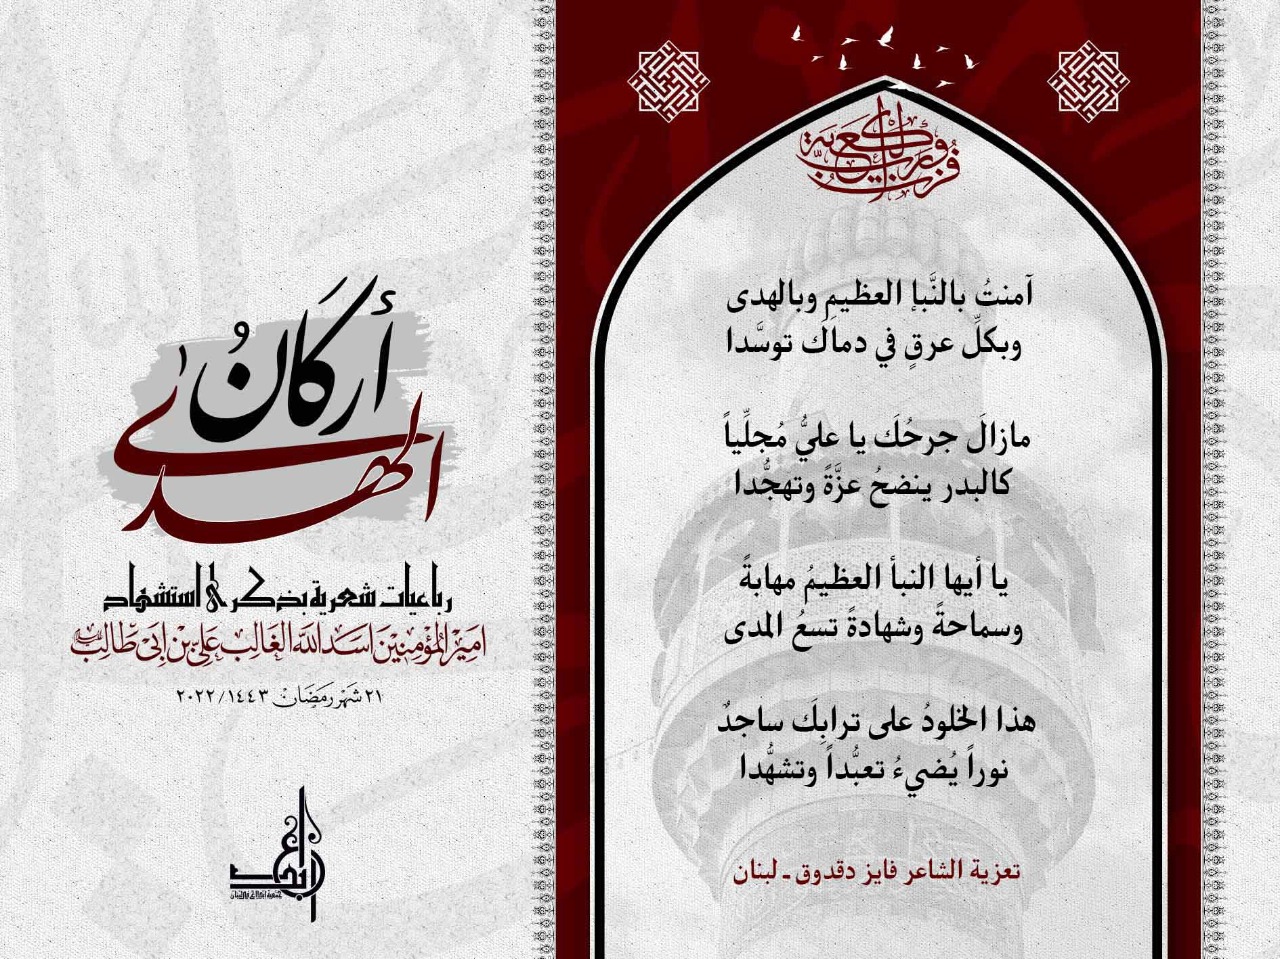 فزت ورب الكعبة
آمنتُ بالنَّبإ العظيمِ وبالهدى
وبكلِّ عرقٍ في دماك توسَّدا
مازالَ جرحُكَ يا عليُّ مُجلِّياً
كالبدر ينضحُ عزَّةً وتهجُّدا
يا أيها النبأ العظيمُ مهابةً
وسماحةً وشهادةً تسعُ المدى
هذا الخلودُ على ترابِكَ ساجدٌ
نوراً يُضيءُ تعبُّداً وتشهُّدا
تعزية الشاعر فايز دقدوق ـ لبنان
أركانُ
الهدى
رباعيات شعرية بذكرى استشهاد
امير المؤمنين اسد الله الغالب علي بن ابي طالب
٢١ شهر رمضان ١٤٤٣/٢٠٢٢